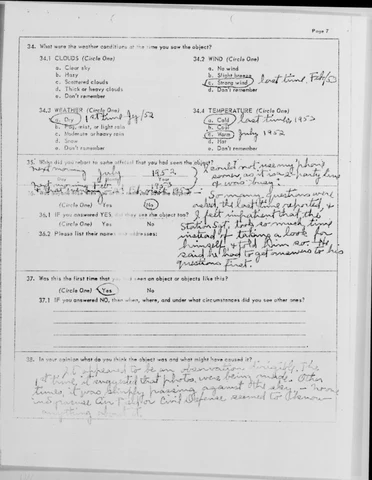 Page 7
34. What were the weather conditions at the time you saw the object?
34.1 CLOUDS (Circle One)
a. Clear sky
b. Hazy
c. Scattered clouds
d. Thick or heavy clouds
e. Don't remember
34.2 WIND (Circle One)
a. No wind
b. Slight breeze
c. Strong wind last time, Feb/
d. Don't remember
34.3 WEATHER (Circle One)
a. Dry 1st time /52
b. Fog, mist, or light rain
c. Moderate or heavy rain
d. Snow
e. Don't remember
34.4 TEMPERATURE (Circle One)
a. Cold last time, 1952
b. Cool
c. Warm July 1952
d. Hot
e. Don't remember
35. When did you report to some official that you had seen the object?
next morning July 1952
1952
(Circle One) Yes No
36.1 IF you answered YES, did they see the object too?
(Circle One) Yes No
36.2 Please list their names and addresses:
I could not use my phone
sooner, as it is a party line
& was "busy".
So many questions were
asked, the last time reported, &
I felt impatient that the
Station Sgt. took so much time
instead of taking a look for
himself, & told him so. He
said he had to get answers to his
questions first.
37. Was this the first time that you had seen an object or objects like this?
(Circle One) Yes No
37.1 IF you answered NO, then when, where, and under what circumstances did you see other ones?
38. In your opinion what do you think the object was and what might have caused it?
It appeared to be an observation dirigible. The
1st time, it suggested that photos were being made. Other
times, it was simply passing against the sky. - None
Civil Defense seemed to know
anything about it.